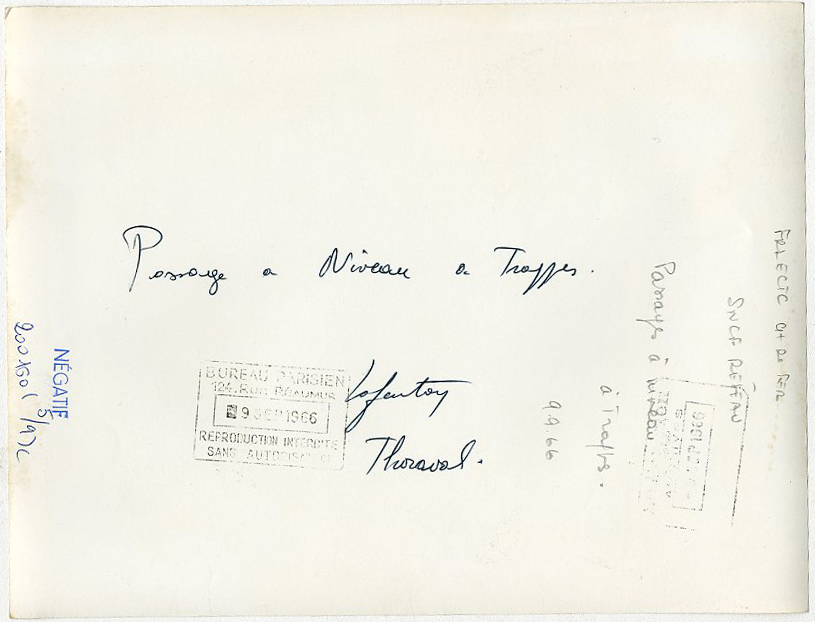 Passage a Niveau a Trappes.
BUREAU PARISIEN
124, RUE RÉAUMUR
9 SEP 1966
REPRODUCTION INTERDITE
SANS AUTORISATION
Thoraval.
NÉGATIF
200160 (3/9) c
Passages à niveau
à Trappes.
9.9.66
SNCF RÉSEAU
CH DE FER